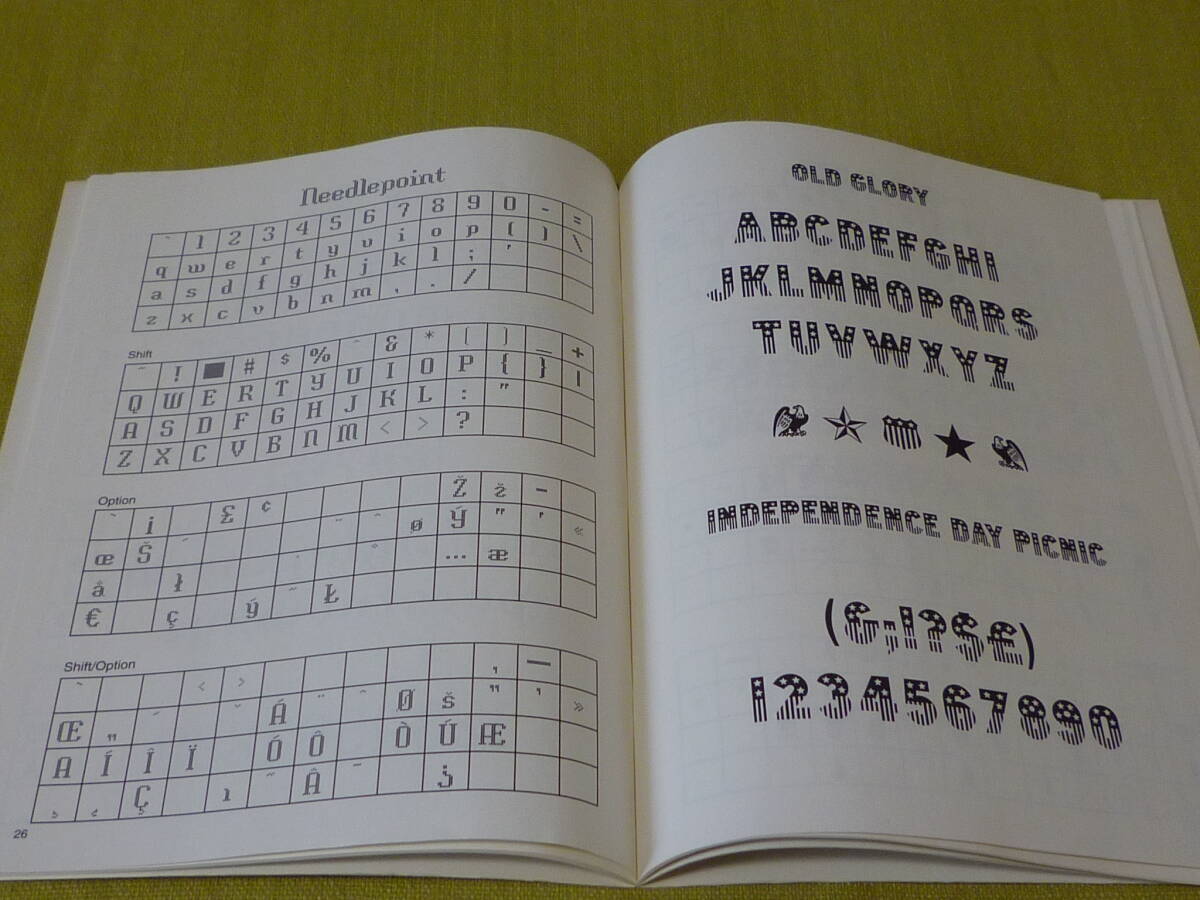 Needlepoint
` 1 2 3 4 5 6 7 8 9 0 - =
q w e r t y u i o p [ ] \
a s d f g h j k l ; '
z x c v b n m , . /
Shift
~ ! # $ % ^ & * ( ) _ +
Q W E R T Y U I O P { } |
A S D F G H J K L : "
Z X C V B N M < > ?
Option
` ¡ £ ¢ Ž ž –
œ Š ´ ¨ ˆ ø Ý " ' «
å ł ˙ ˚ … æ
€ ç ý ˜ Ł
Shift/Option
` ‹ › ‚ —
Œ „ ´ ˇ Á ¨ ˆ Ø š " ' »
A Í Î Ï Ó Ô Ò Ú Æ
¸ Ç ı ˜ Â ¯ ¿
26
OLD GLORY
ABCDEFGHI
JKLMNOPQRS
TUVWXYZ
INDEPENDENCE DAY PICNIC
(&;!?$£)
1234567890